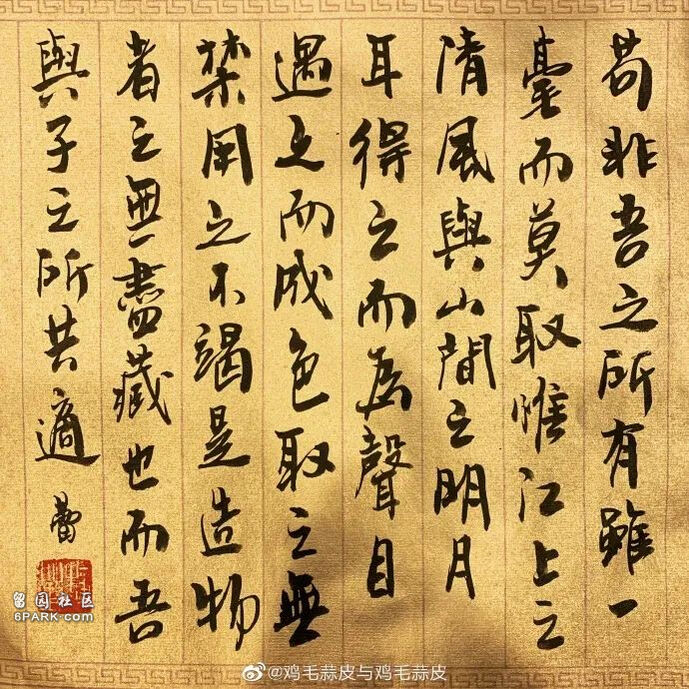 苟非吾之所有雖一
毫而莫取惟江上之
清風與山間之明月
耳得之而為聲目
遇之而成色取之無
禁用之不竭是造物
者之無盡藏也而吾
與子之所共適
蕾
留园社区
6PARK.com
@鸡毛蒜皮与鸡毛蒜皮